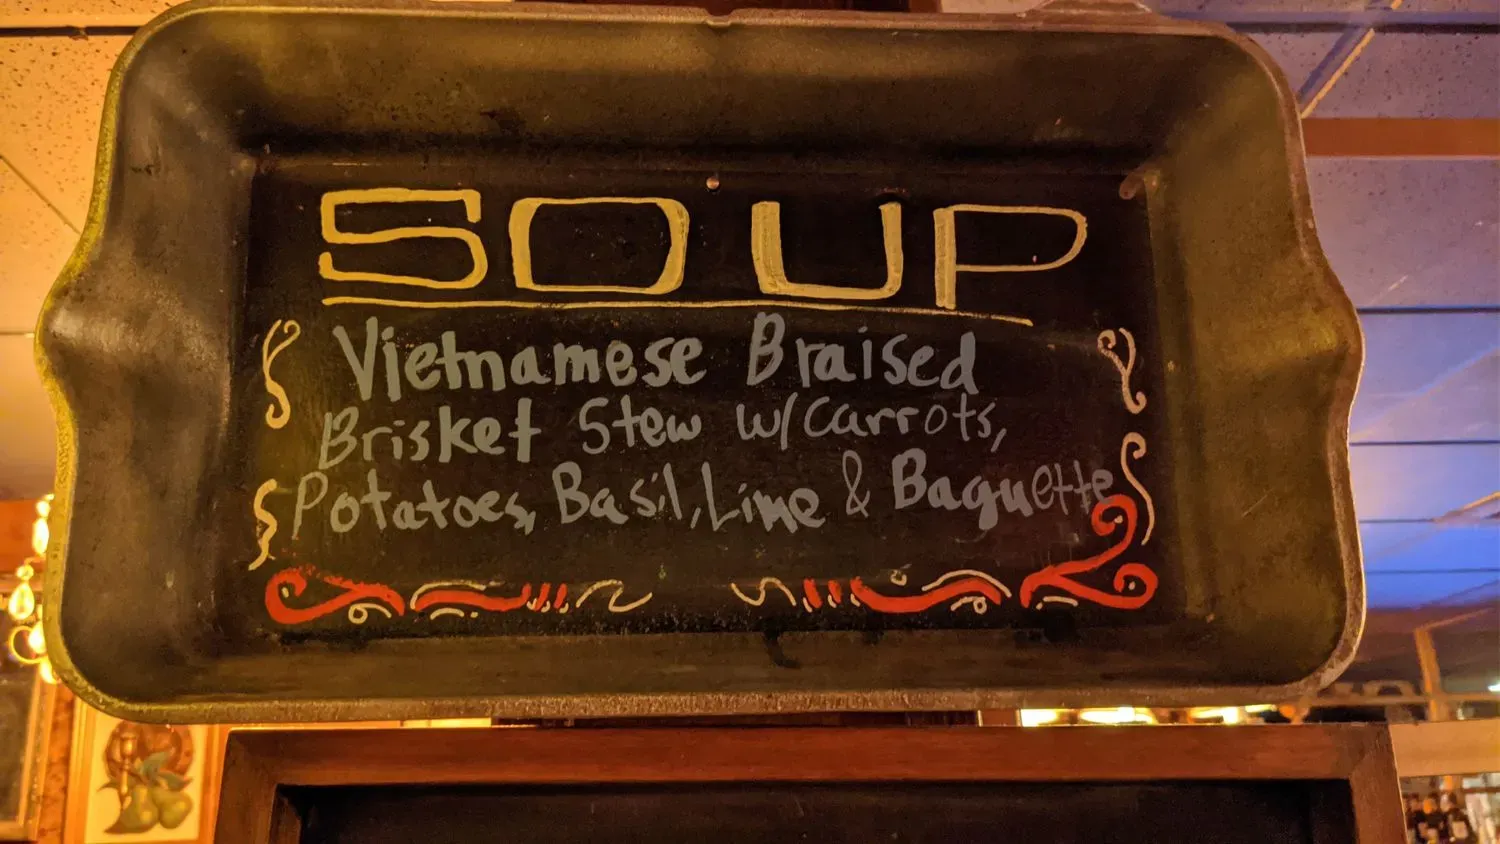 SOUP
Vietnamese Braised
Brisket Stew w/ Carrots,
Potatoes, Basil, Lime & Baguette